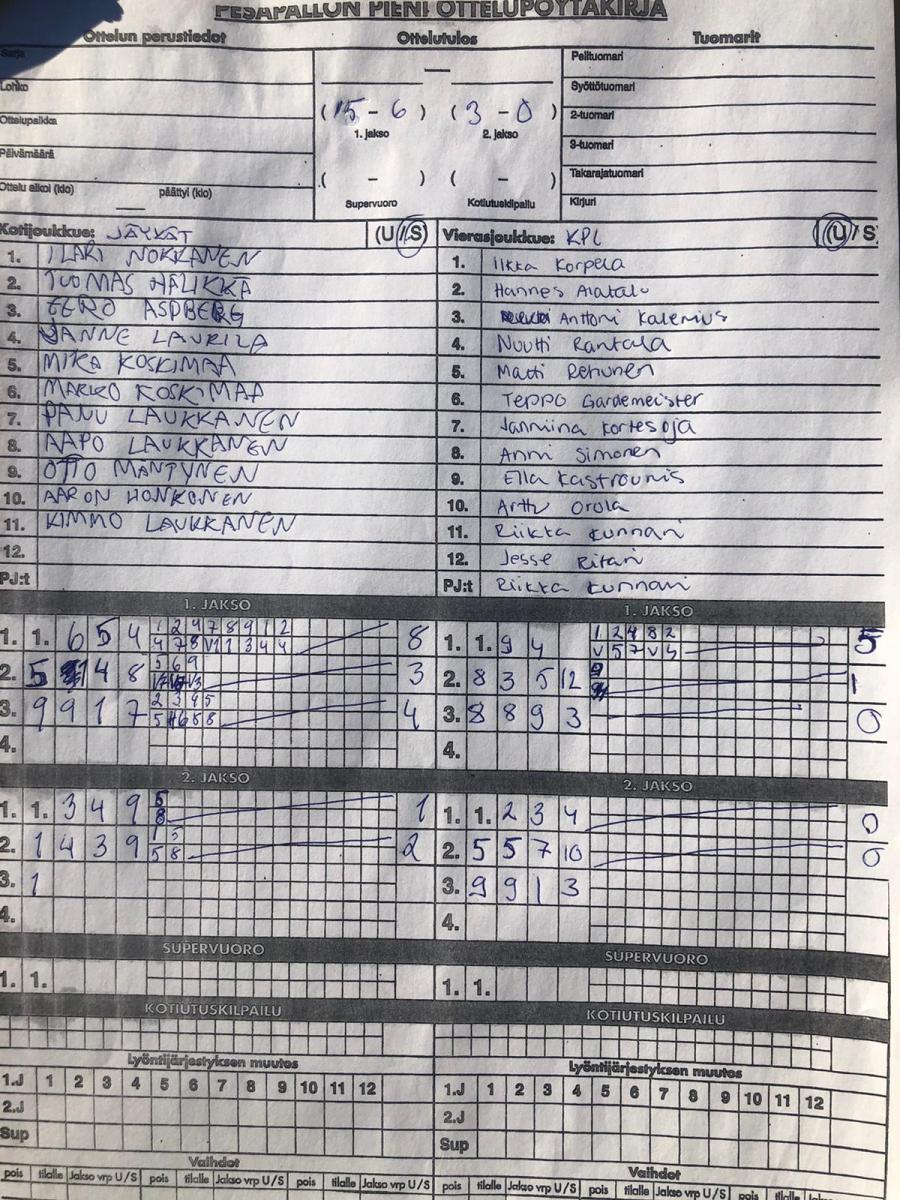 PESÄPALLON PIENI OTTELUPÖYTÄKIRJA
Ottelun perustiedot
Sarja
Lohko
Ottelupaikka
Päivämäärä
Ottelu alkoi (klo) päättyi (klo)
Ottelutulos
—
(15 - 6) (3 - 0)
1. jakso 2. jakso
( - ) ( - )
Supervuoro Kotiutuskilpailu
Tuomarit
Pelituomari
Syöttötuomari
2-tuomari
3-tuomari
Takarajatuomari
Kirjuri
Kotijoukkue: JÄYKÄT (U/S)
1. ILARI NOKKANEN
2. TUOMAS HALIKKA
3. EERO ASPBERG
4. JANNE LAURILA
5. MIKA KOSKIMAA
6. MARKO KOSKIMAA
7. PANU LAUKKANEN
8. AAPO LAUKKANEN
9. OTTO MÄNTYNEN
10. AARON HONKONEN
11. KIMMO LAUKKANEN
12.
PJ:t
Vierasjoukkue: KPL (U/S)
1. Ilkka Korpela
2. Hannes Alatalo
3. Anttoni Kalenius
4. Nuutti Rantala
5. Matti Rehunen
6. Teppo Gardemeister
7. Janniina Kortesoja
8. Anni Simonen
9. Ella Kastrounis
10. Arttu Orola
11. Riikka Kunnari
12. Jesse Ritari
PJ:t Riikka Kunnari
1. JAKSO
1. 1. 6 5 4 8
1 2 4 7 8 9 1 2
4 7 8 V1 1 3 4 4
2. 5 1 4 8 3
5 6 9
3. 9 9 1 7 4
2 3 4 5
5 4 6 8 8
4.
2. JAKSO
1. 1. 3 4 9 1
5
8
2. 1 4 3 9 2
1 5
5 8
3. 1
4.
SUPERVUORO
1. 1.
KOTIUTUSKILPAILU
Lyöntijärjestyksen muutos
1.J 1 2 3 4 5 6 7 8 9 10 11 12
2.J
Sup
Vaihdot
pois tilalle Jakso vrp U/S pois tilalle Jakso vrp U/S pois tilalle Jakso vrp U/S
1. JAKSO
1. 1. 9 4 5
1 2 4 8 2
V 5 7 V 4
2. 8 3 5 12 1
9
3. 8 8 9 3 0
4.
2. JAKSO
1. 1. 2 3 4 0
2. 5 5 7 10 0
3. 9 9 1 3
4.
SUPERVUORO
1. 1.
KOTIUTUSKILPAILU
Lyöntijärjestyksen muutos
1.J 1 2 3 4 5 6 7 8 9 10 11 12
2.J
Sup
Vaihdot
pois tilalle Jakso vrp U/S pois tilalle Jakso vrp U/S pois tilalle Jakso